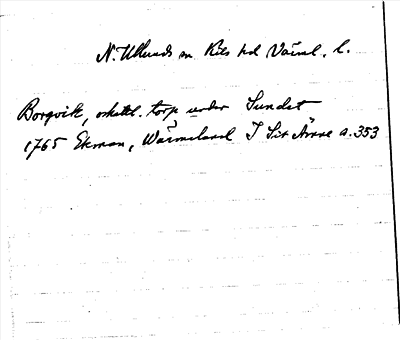 N. Ullerads sn Kils hd Värml. l.
Borgvik, oskattl. torp under Sundet
1765 Ekman, Wärmeland I s. 353